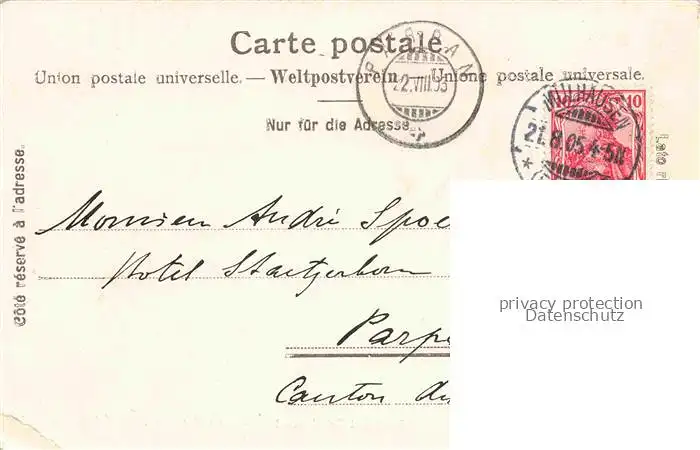 Carte postale
Union postale universelle. — Weltpostverein — Unione postale universale.
Nur für die Adresse
22.VIII.05
MÜLHAUSEN
21.8.05.4-5N
10
Côté réservé à l'adresse.
Lato
Monsieur André Spoe
Hotel
Parp
Canton du
privacy protection
Datenschutz